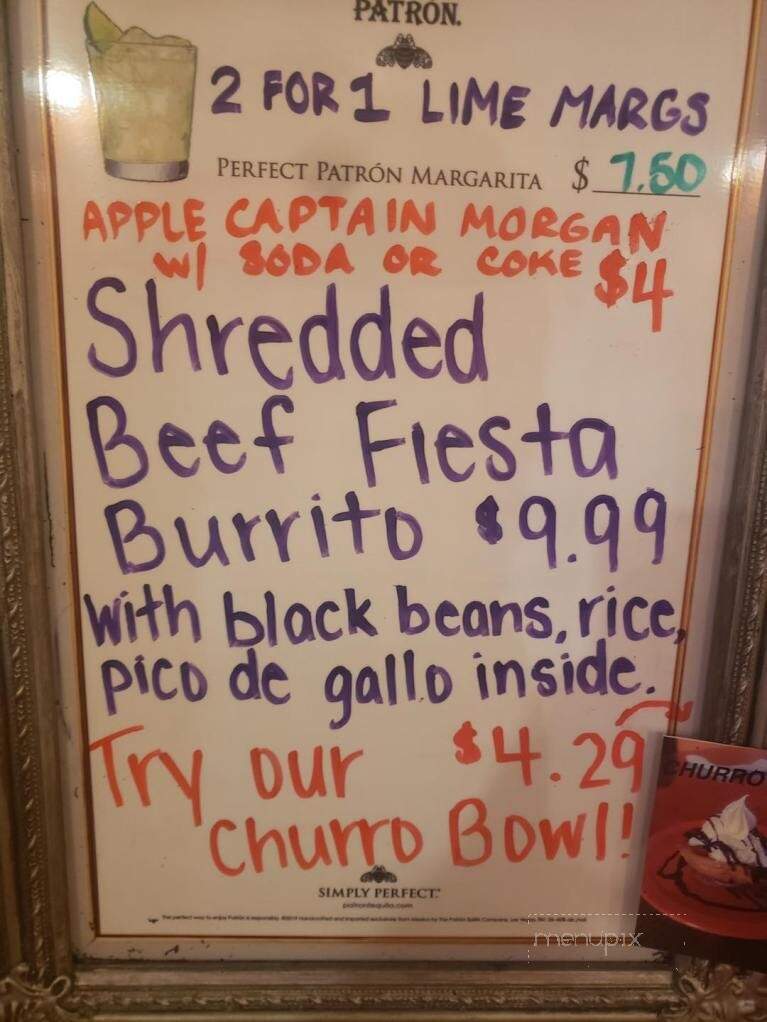 PATRÓN.
2 FOR 1 LIME MARGS
PERFECT PATRÓN MARGARITA $ 7.50
APPLE CAPTAIN MORGAN
W/ SODA OR COKE $4
Shredded
Beef Fiesta
Burrito $9.99
with black beans, rice,
pico de gallo inside.
Try our $4.29
Churro Bowl!
CHURRO
SIMPLY PERFECT.
patrontequila.com
The perfect way to enjoy Patrón is responsibly.
menupix